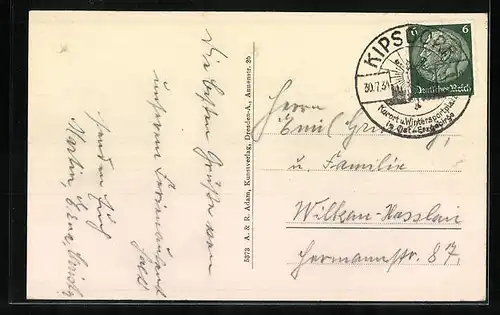 Die besten Grüße von
unserem Ferienaufent
halt
senden Euch
Martin, Erna,
5373 A. & R. Adam, Kunstverlag, Dresden-A., Annenstr. 20
KIPSDORF
30.7.34
Kurort u. Wintersportplatz
im Ost-Erzgebirge
6 6
Deutsches Reich
Herrn
Emil
u. Familie
Wilkau-Hasslau
Hermannstr. 87,